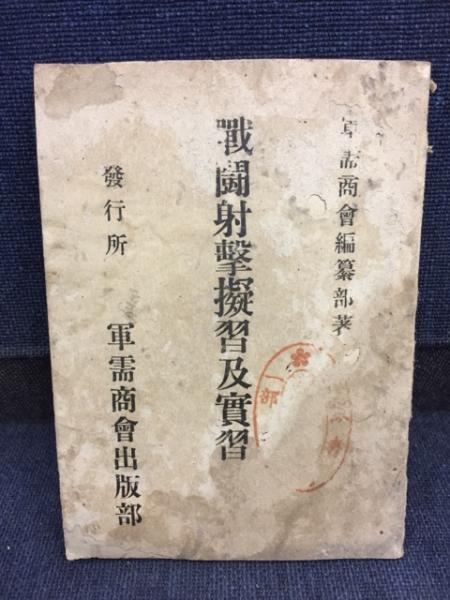 軍需商會編纂部著
戰鬪射擊擬習及實習
發行所
軍需商會出版部
部